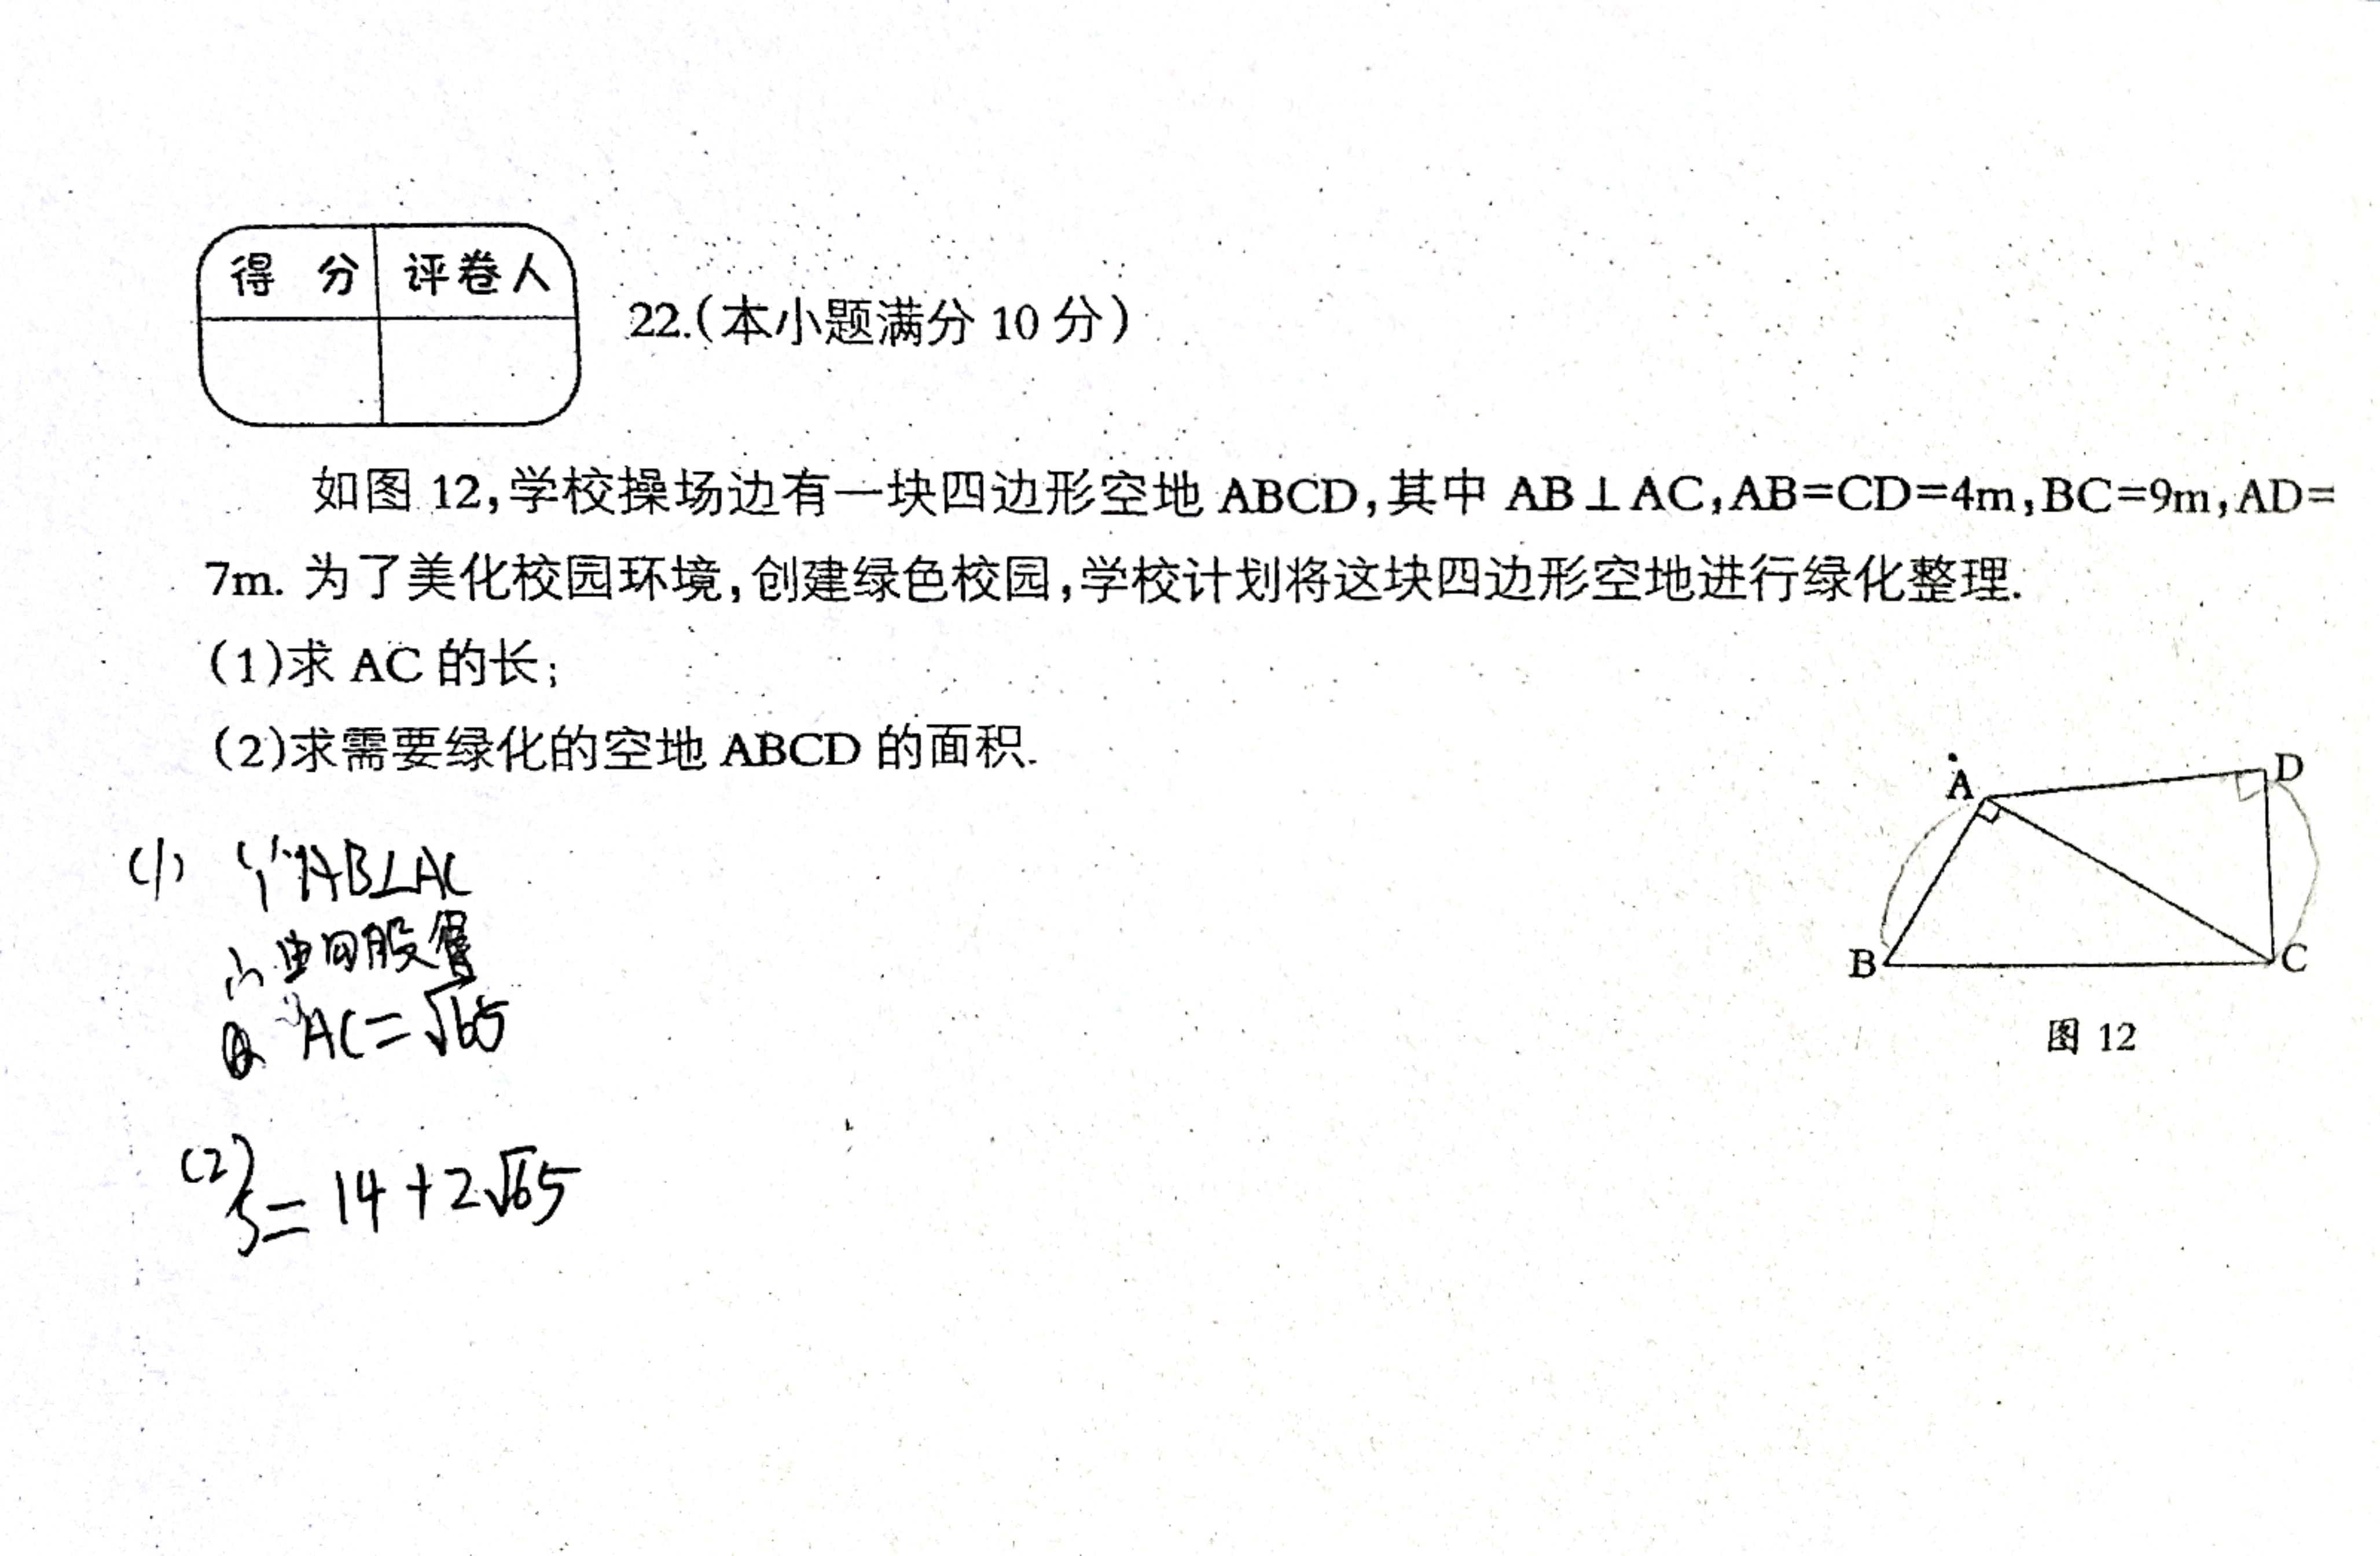 得 分 评卷人
22.(本小题满分 10 分)
如图 12,学校操场边有一块四边形空地 ABCD,其中 AB⊥AC,AB=CD=4m,BC=9m,AD=
7m. 为了美化校园环境,创建绿色校园,学校计划将这块四边形空地进行绿化整理.
(1)求 AC 的长;
(2)求需要绿化的空地 ABCD 的面积.
A
D
B
C
图 12
(1) ∵AB⊥AC
∴由勾股得
AC=√65
(2)
S=14+2√65